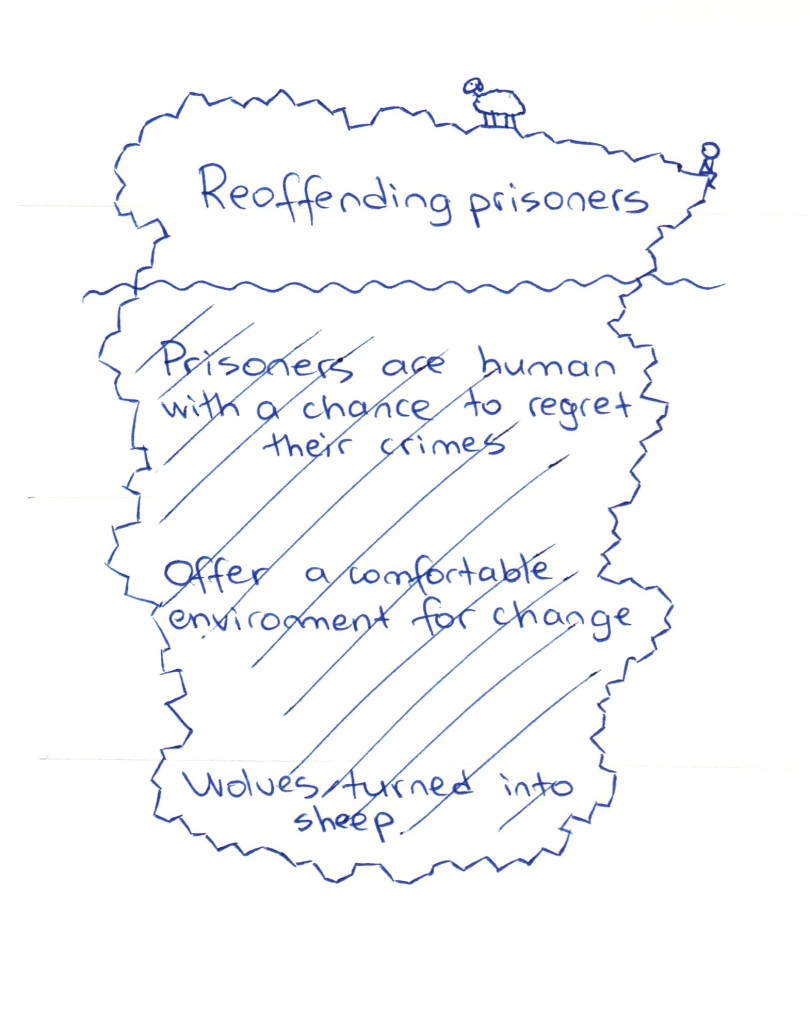 Reoffending prisoners
Prisoners are human
with a chance to regret
their crimes
Offer a comfortable
enviroment for change
Wolves turned into
sheep.